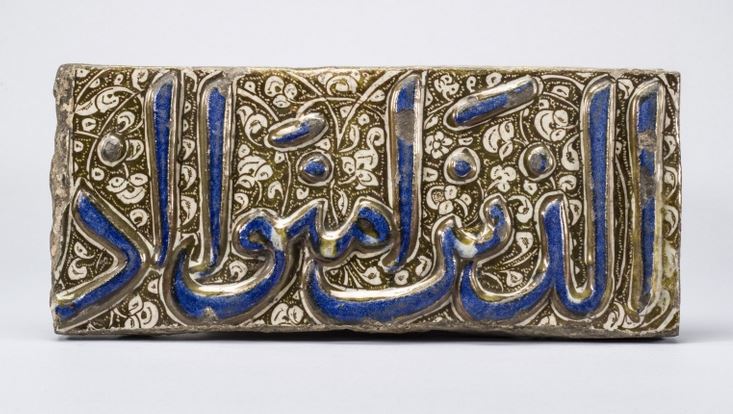 الذين امنوا اذ